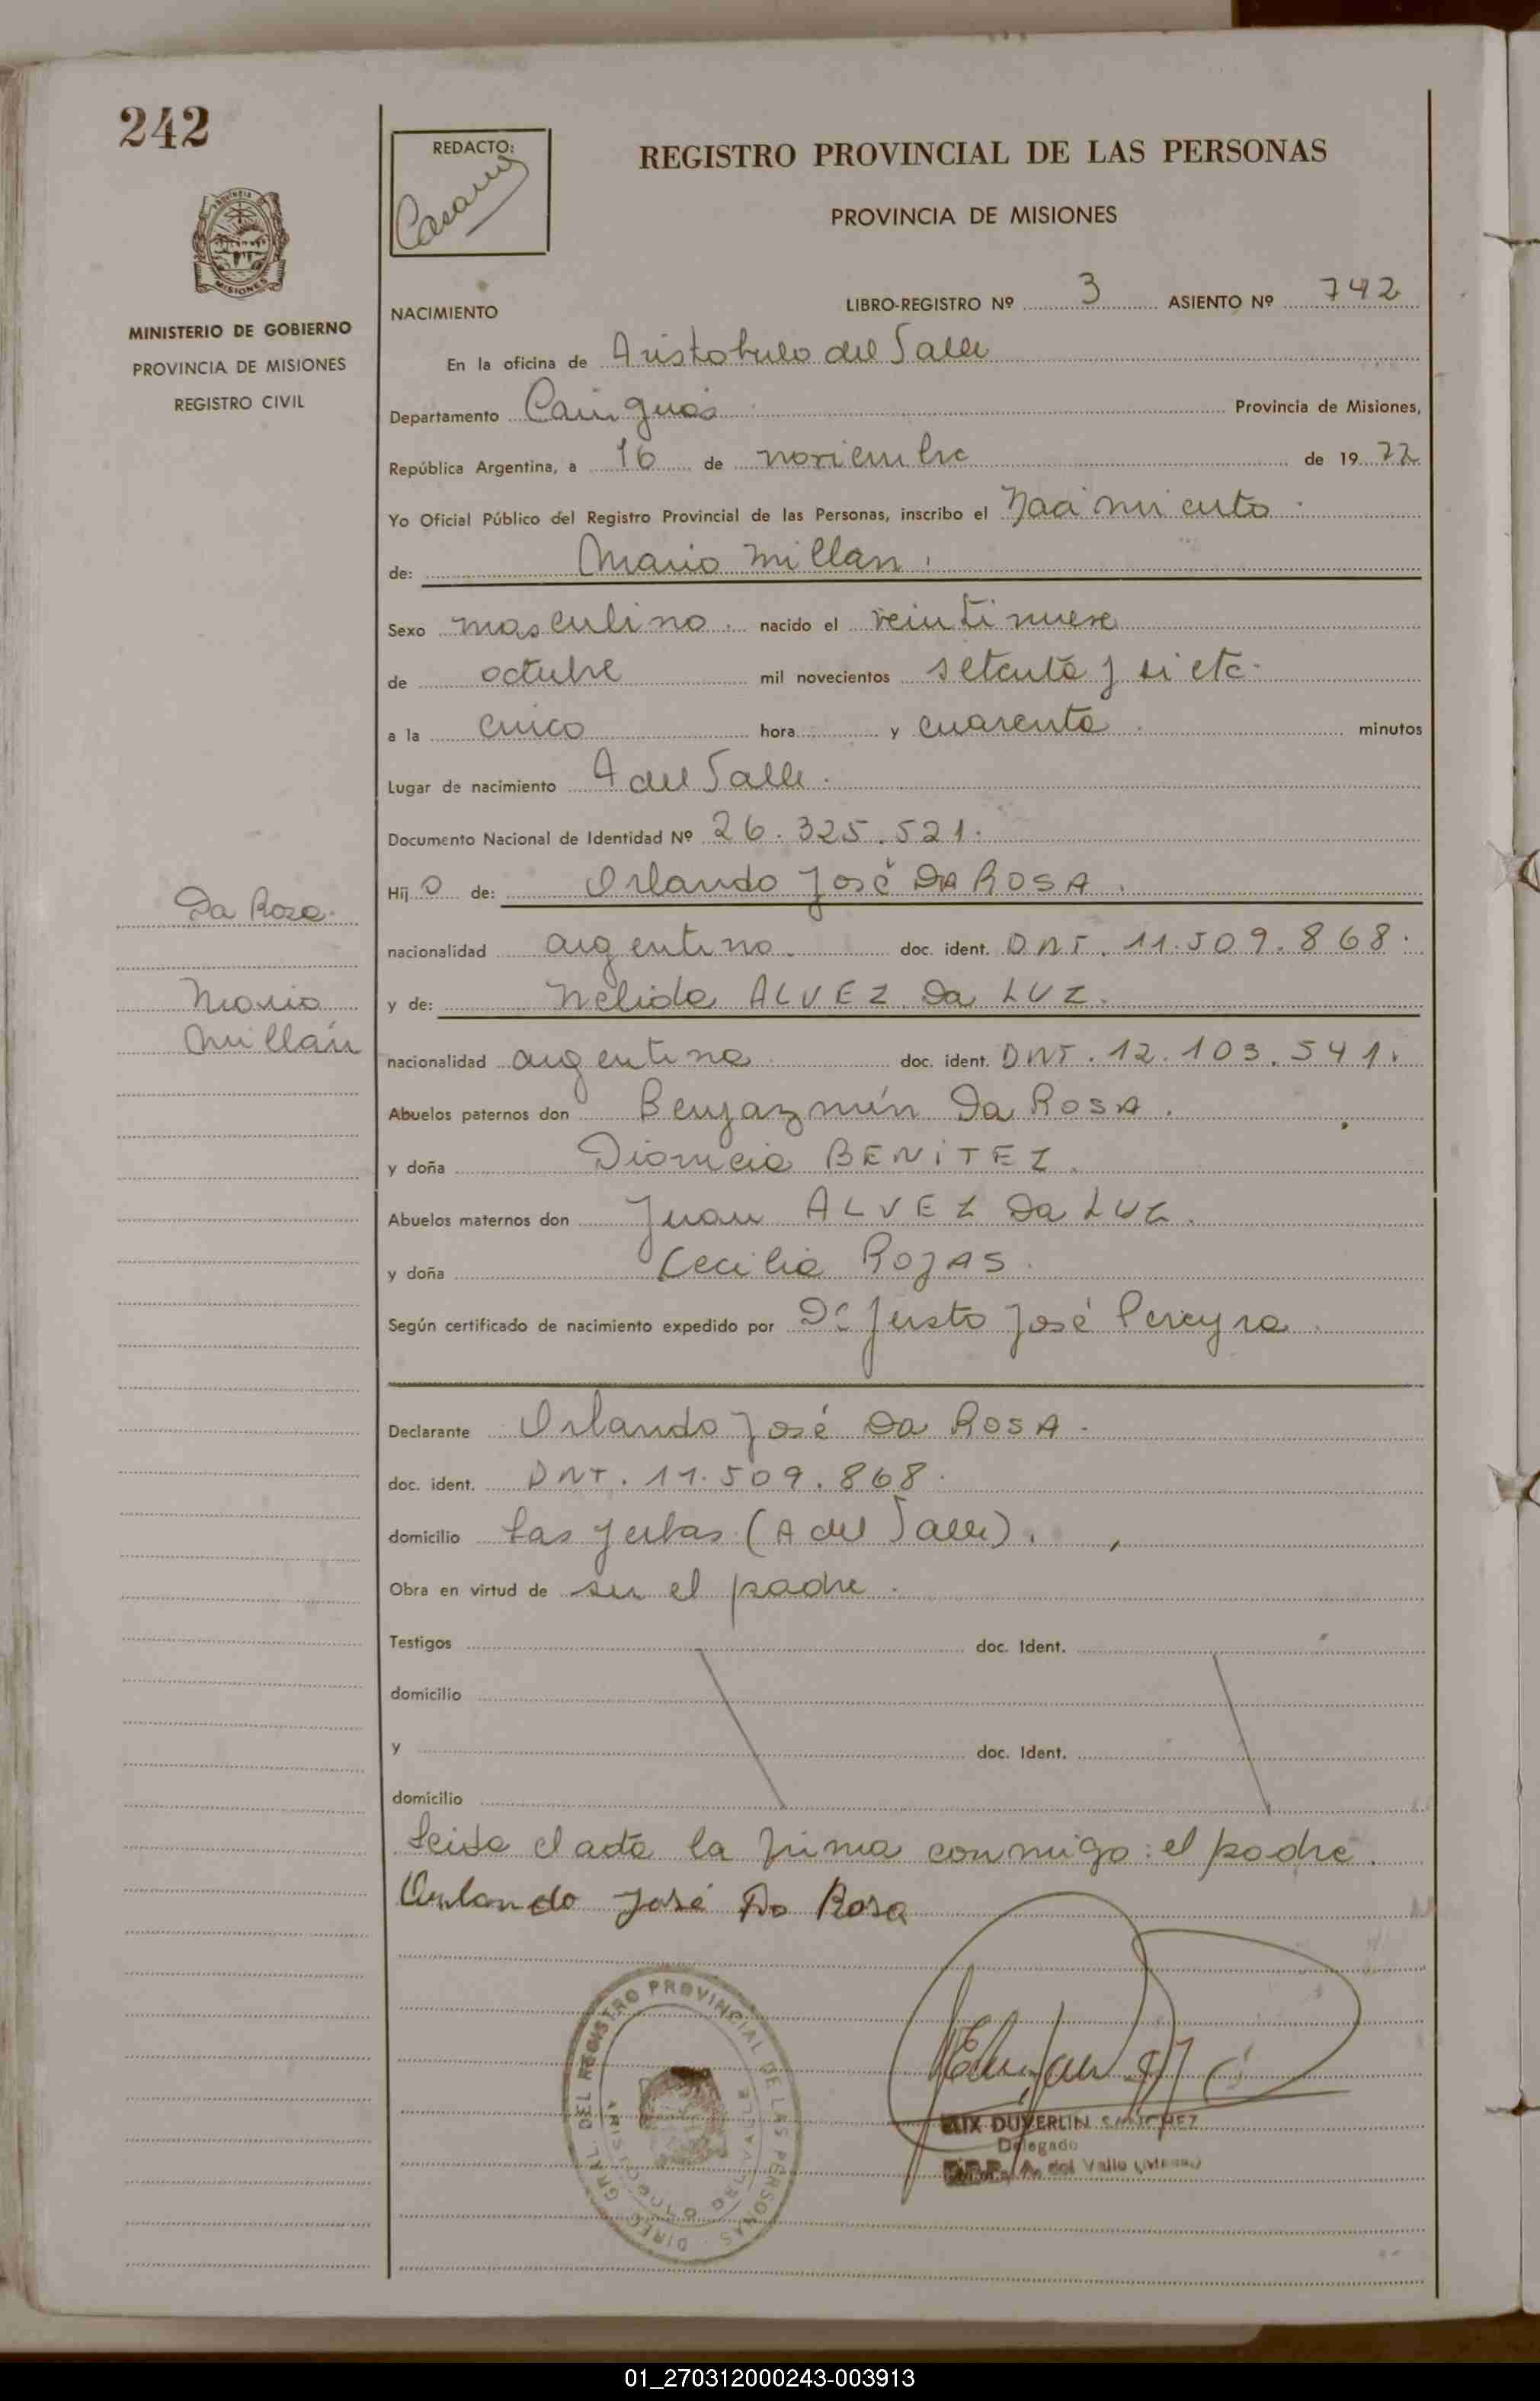 242
REDACTO:
REGISTRO PROVINCIAL DE LAS PERSONAS
PROVINCIA DE MISIONES
MISIONES
MINISTERIO DE GOBIERNO
PROVINCIA DE MISIONES
REGISTRO CIVIL
NACIMIENTO LIBRO-REGISTRO Nº 3 ASIENTO Nº 742
En la oficina de Aristobulo del Valle
Departamento Cainguás Provincia de Misiones,
República Argentina, a 16 de noviembre de 19 77
Yo Oficial Público del Registro Provincial de las Personas, inscribo el Nacimiento
de: Mario Millan.
Sexo masculino. nacido el veintinueve
de octubre mil novecientos setenta y siete
a la cinco hora y cuarenta minutos
Lugar de nacimiento A del Valle.
Documento Nacional de Identidad Nº 26.325.521.
Hij o de: Orlando José DA ROSA.
nacionalidad argentino. doc. ident. DNI. 11.509.868.
y de: Nelida ALVEZ Da LUZ.
nacionalidad argentina doc. ident. DNI. 12.103.541.
Abuelos paternos don Benjazmín Da ROSA.
y doña Dionicia BENITEZ.
Abuelos maternos don Juan ALVEZ Da LUZ.
y doña Cecilia ROJAS.
Según certificado de nacimiento expedido por Dr Justo José Pereyra
Da Rosa.
Mario
Millán
Declarante Orlando José Da ROSA.
doc. ident. DNI. 11.509.868.
domicilio Las Yerbas (A del Valle).
Obra en virtud de ser el padre.
Testigos doc. Ident.
domicilio
y doc. Ident.
domicilio
Leida el acta la firma conmigo: el padre.
Orlando José Da Rosa
DIREC. GRAL. DEL REGISTRO PROVINCIAL DE LAS PERSONAS
ARISTOBULO DEL VALLE
DUVERLIN SANCHEZ
Delegado
A. del Valle (Mnes.)
01_270312000243-003913